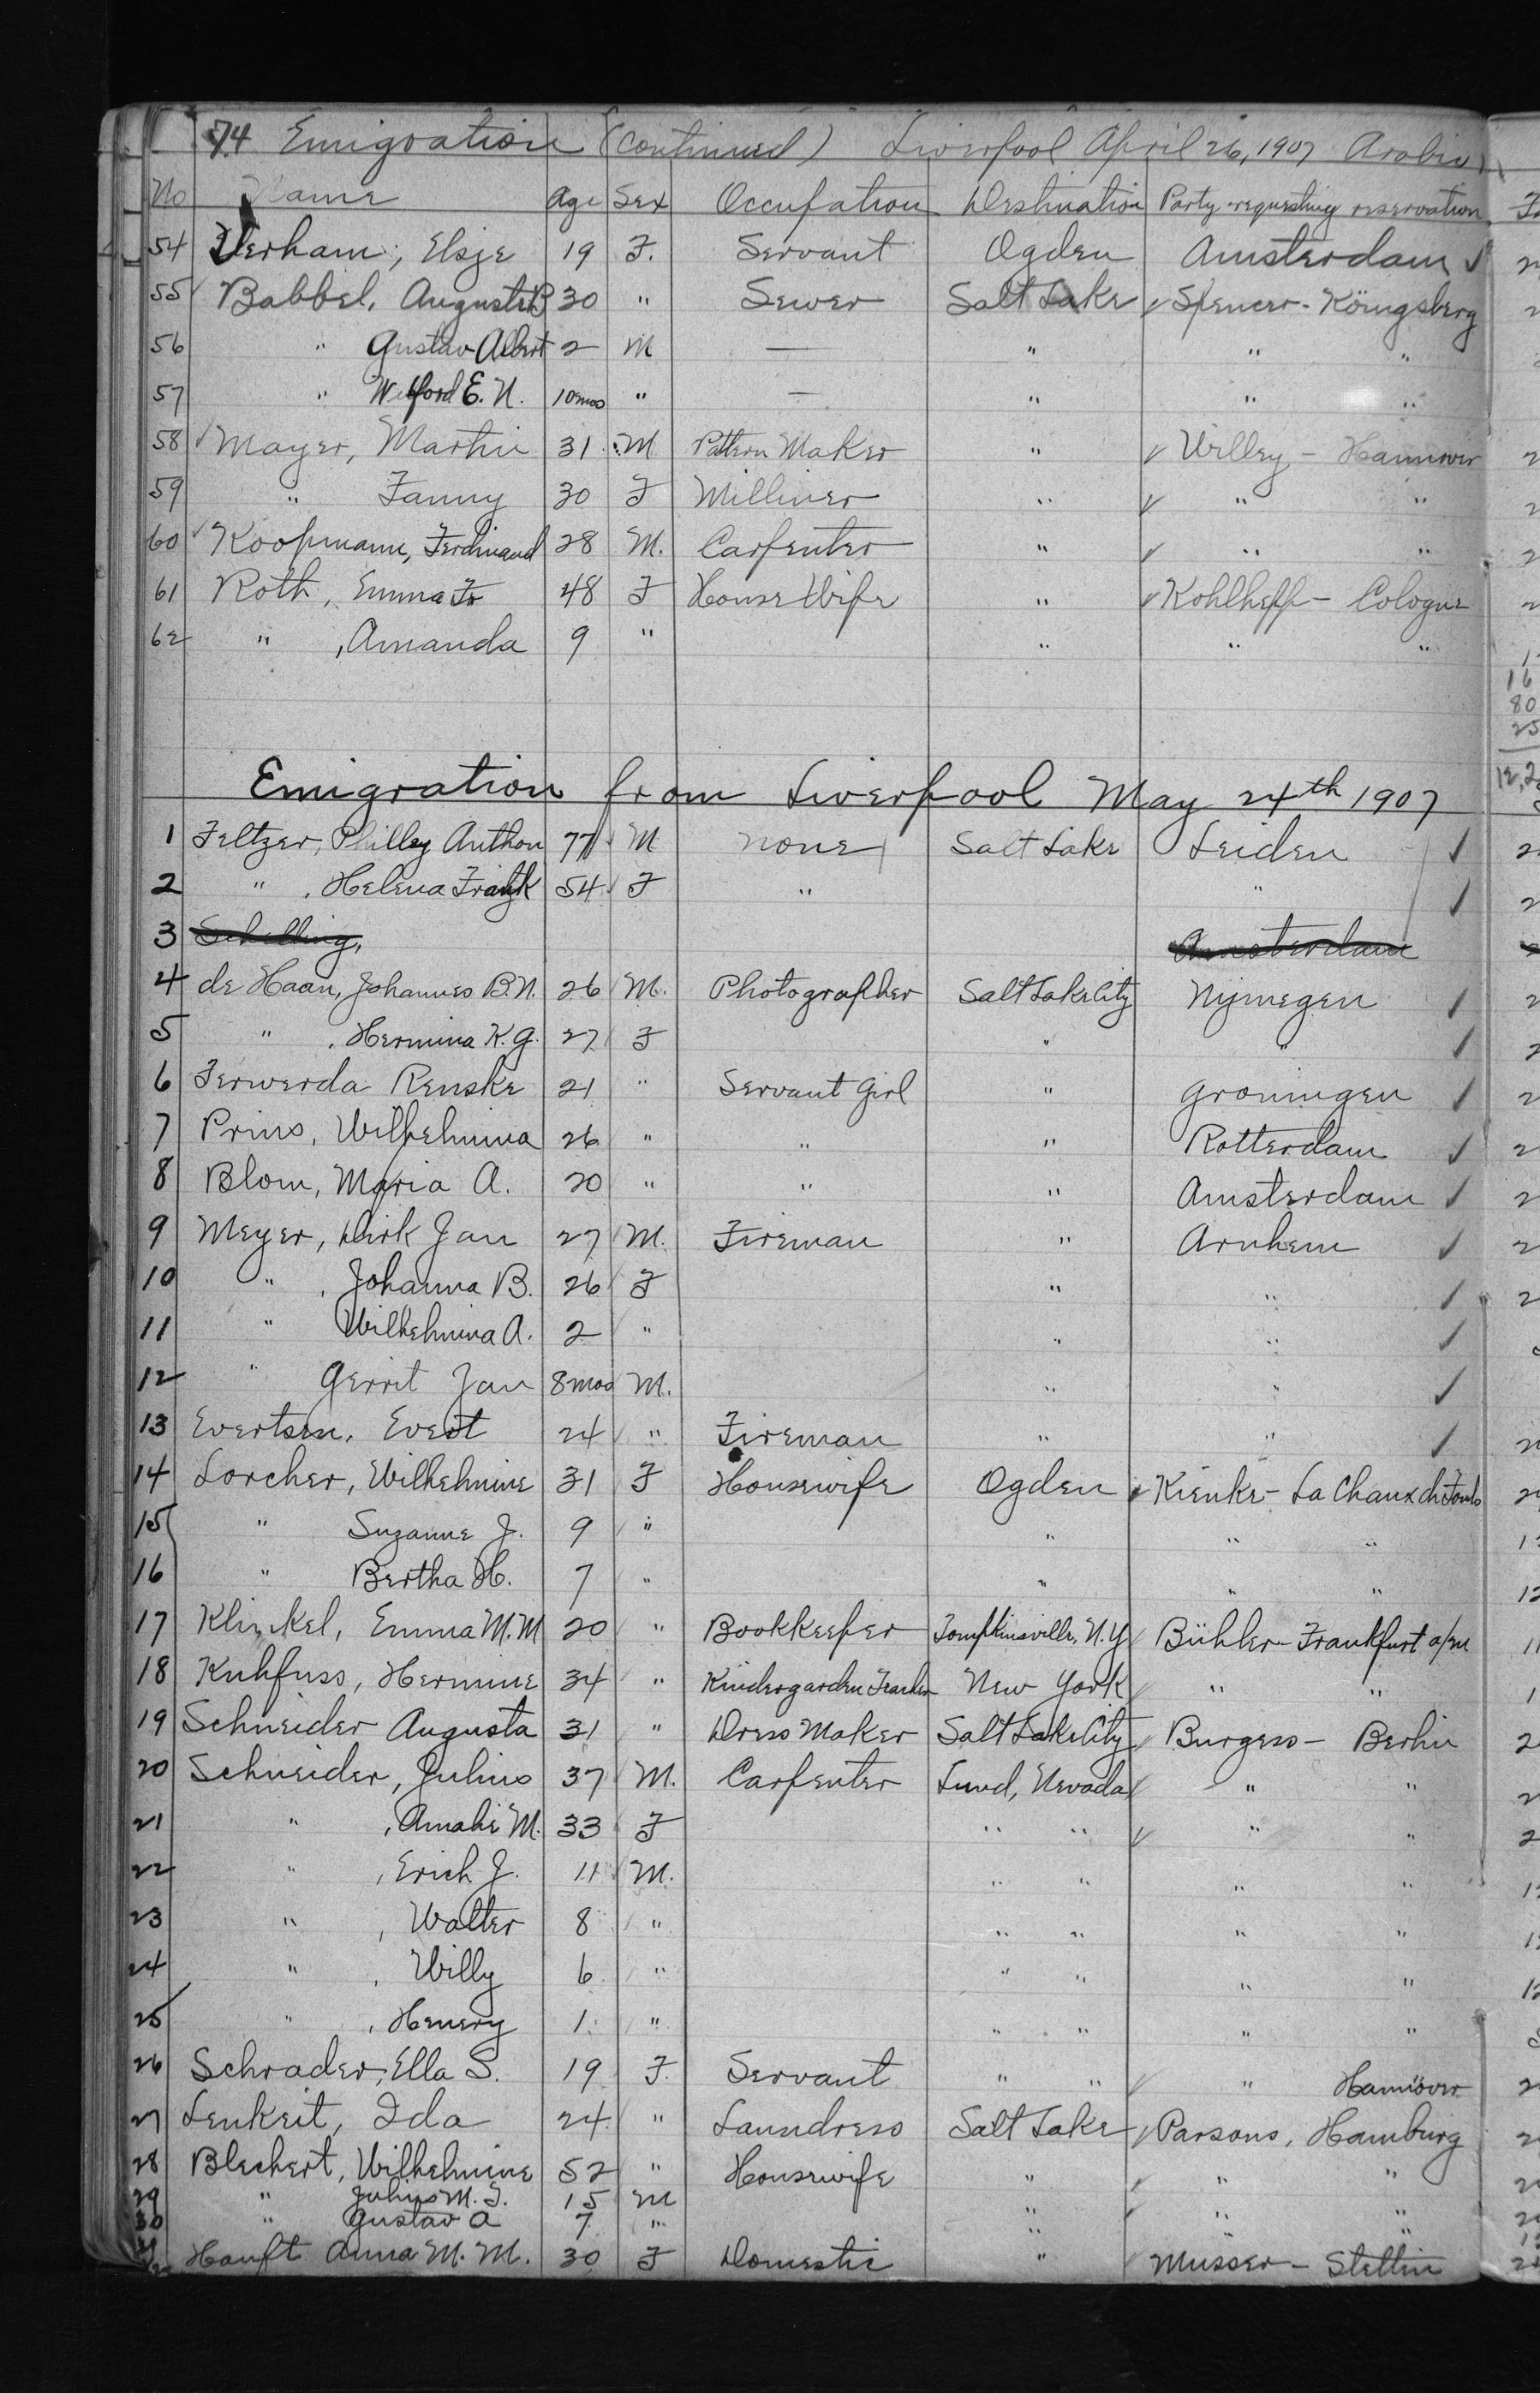 74 Emigration (continued) Liverpool April 26, 1907 Arabic
No Name Age Sex Occupation Destination Party requesting reservation
54 Verham, Elsje 19 F. Servant Ogden Amsterdam ✓
55 Babbel, Auguste B 30 " Sewer Salt Lake ✓ Spencer - Königsberg
56 " Gustav Albert 2 M — " " "
57 " Wilford E. N. 10 mos " — " " "
58 ✓ Mayer, Martin 31 M Pattern Maker " ✓ Willey - Hannover
59 " Fanny 30 F Milliner " ✓ " "
60 ✓ Koopmann, Ferdinand 28 M. Carpenter " ✓ " "
61 Roth, Emma Fr 48 F House Wife " ✓ Kohlhepp - Cologne
62 " , Amanda 9 " " " "
Emigration from Liverpool May 24th 1907
1 Feltzer, Philley Anthon 77 M none Salt Lake Leiden ✓
2 " , Helena 54 F " " ✓
3 Schelling, Amsterdam
4 de Haan, Johannes B. N. 26 M. Photographer Salt Lake City Nijmegen ✓
5 " , Hermina K. G. 27 F " " ✓
6 Ferwerda Renske 21 " Servant Girl " Groningen ✓
7 Prins, Wilhelmina 26 " " " Rotterdam ✓
8 Blom, Maria A. 20 " " " Amsterdam ✓
9 Meyer, Dirk Jan 27 M. Fireman " Arnhem ✓
10 " , Johanna B. 26 F " " ✓
11 " Wilhelmina A. 2 " " " ✓
12 " Gerrit Jan 8 mos M. " " ✓
13 Evertsen, Evert 24 " Fireman " " ✓
14 Lorcher, Wilhelmine 31 F Housewife Ogden ✓ Kienke - La Chaux de Fonds
15 " Suzanne J. 9 " " " "
16 " Bertha H. 7 " " " "
17 Klinkel, Emma M. M 20 " Bookkeeper Tompkinsville, N.Y. Bühler - Frankfurt a/m
18 Kuhfuss, Hermine 34 " Kindergarden Teacher New York ✓ " "
19 Schneider Augusta 31 " Dress Maker Salt Lake City ✓ Burgess - Berlin
20 Schneider, Julius 37 M. Carpenter Lund, Nevada ✓ " "
21 " , Amalie M. 33 F " " ✓ " "
22 " , Erich J. 11 M. " " " "
23 " , Walter 8 " " " " "
24 " , Willy 6 " " " " "
25 " , Henery 1 " " " " "
26 Schrader, Ella S. 19 F. Servant " " ✓ " Hannover
27 Lenkeit, Ida 24 " Laundress Salt Lake ✓ Parsons, Hamburg
28 Blechert, Wilhelmine 52 " Housewife " ✓ " "
29 " Julius M. T. 15 M " ✓ " "
30 " Gustav A 7 " " " "
31 Hanft Anna M. M. 30 F Domestic " ✓ Musser - Stettin